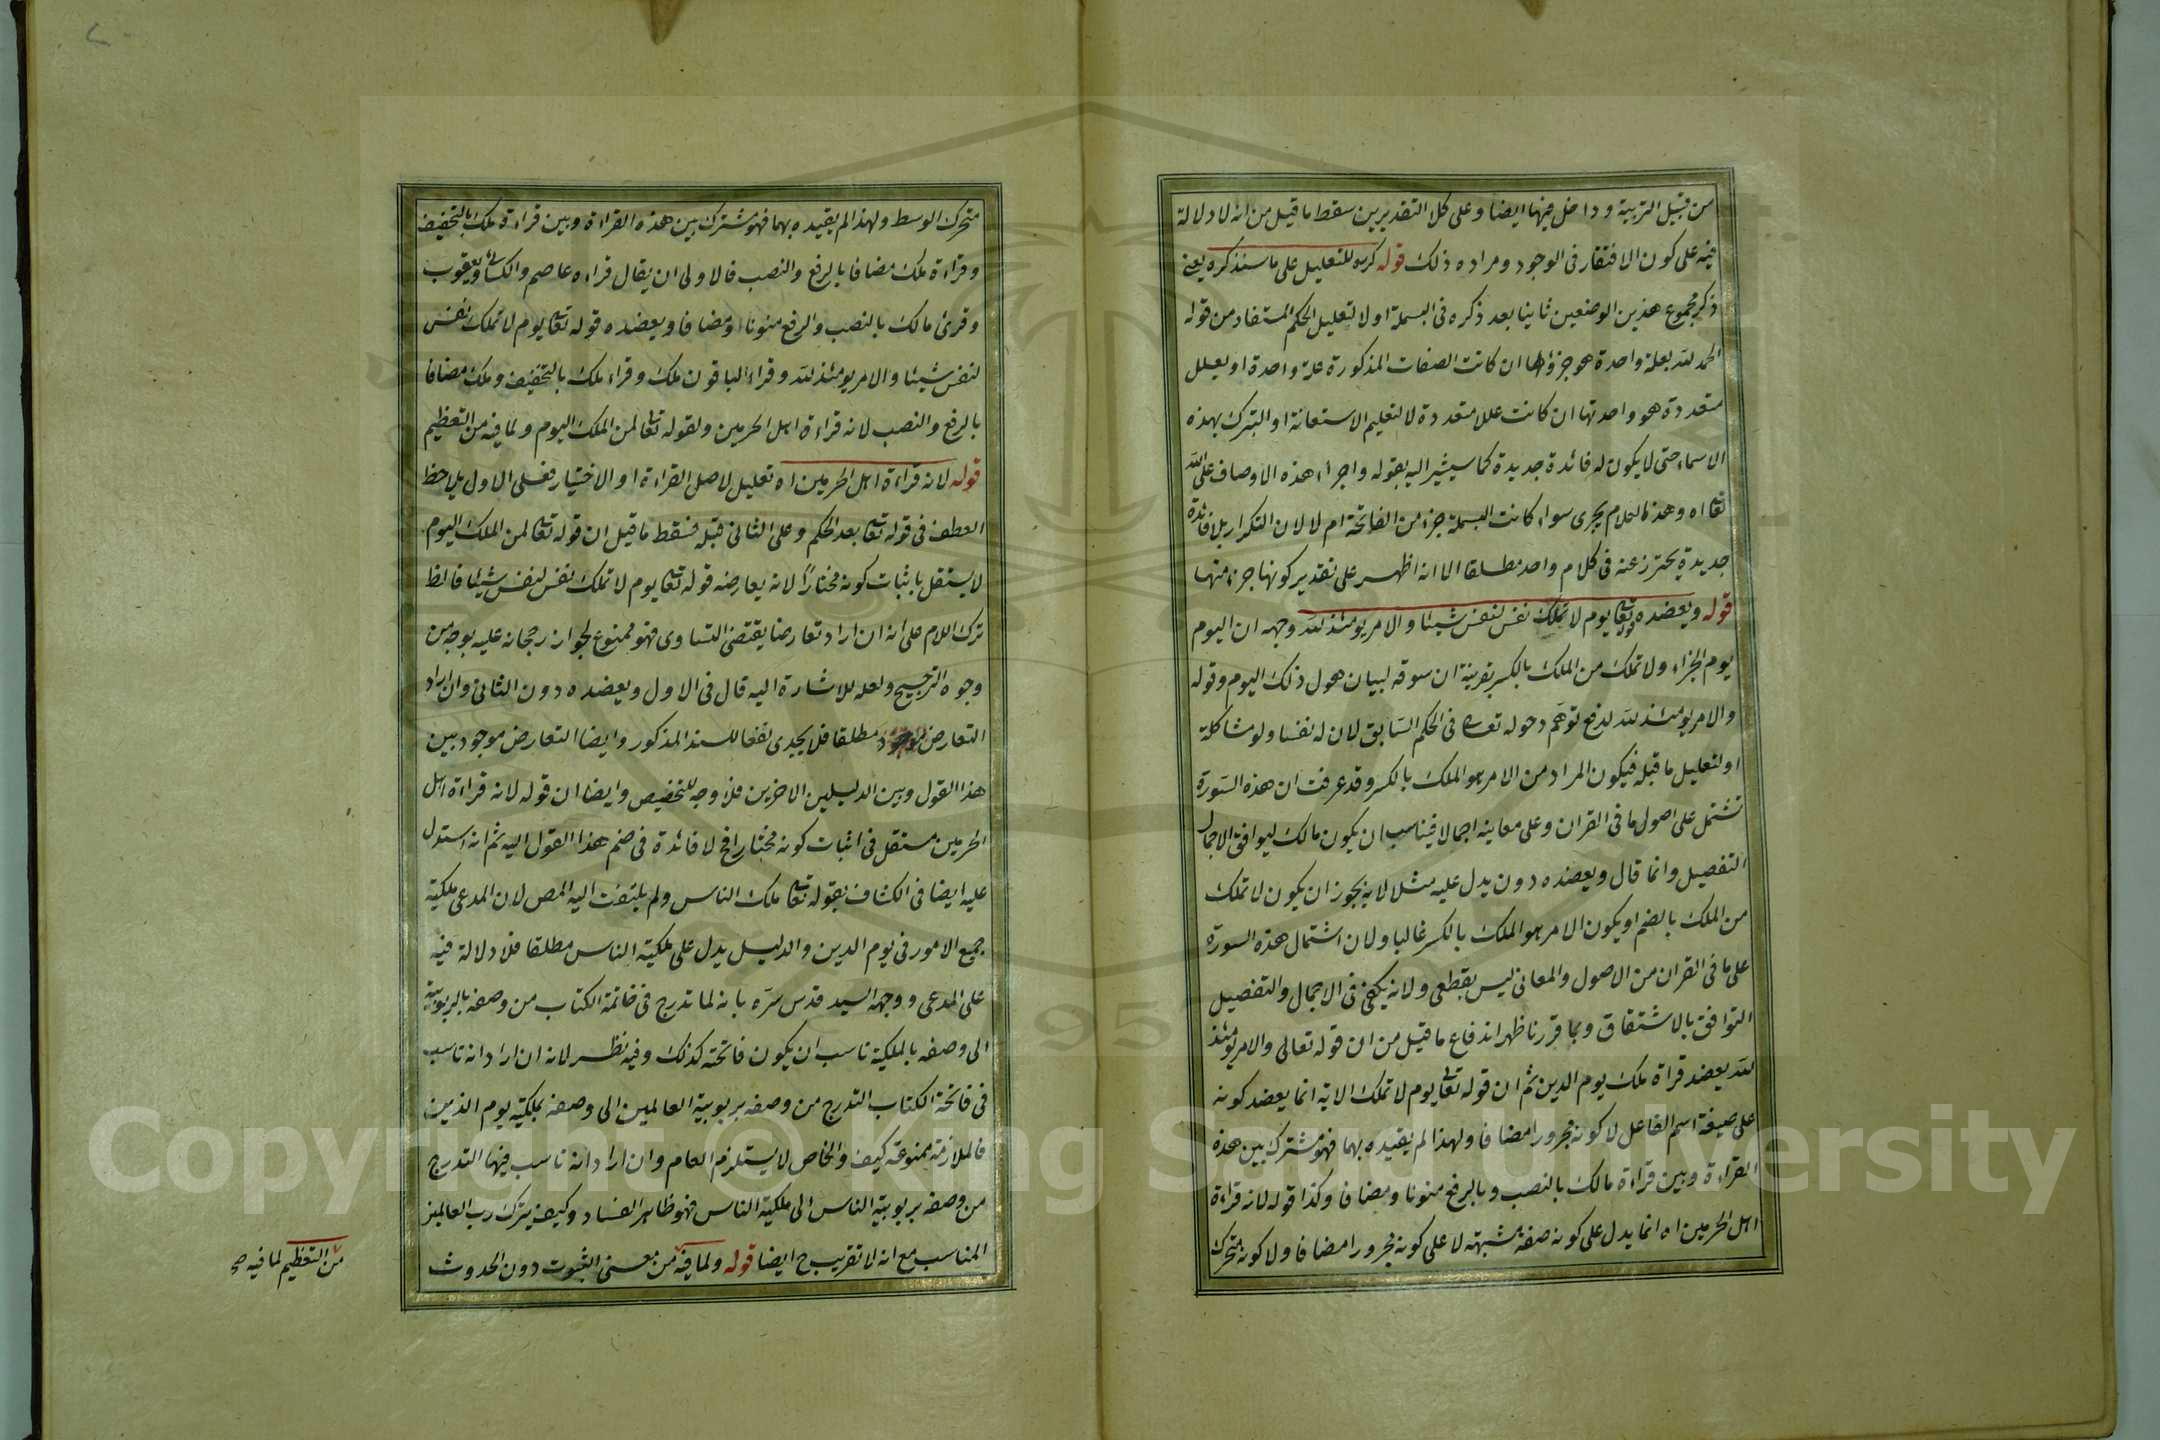 من قبيل التربية وداخل فيها ايضا وعلى كلا التقديرين سقط ما قيل من انه لا دلالة
فيه على كون الافتقار في الوجود ومراده ذلك قوله كرره للتعليل على ما سنذكره يعني
ذكر مجموع هذين الوصفين ثانيا بعد ذكره في البسملة اولا لتعليل الحكم المستفاد من قوله
الحمد لله بعلة واحدة هو جزؤها ان كانت الصفات المذكورة علة واحدة او بعلل
متعددة هو واحدتها ان كانت عللا متعددة لا لتعليم الاستعانة او التبرك بهذه
الاسماء حتى لا يكون له فائدة جديدة كما سيشير اليه بقوله واجراء هذه الاوصاف على الله
تعا اه وهذا الكلام يجرى سواء كانت البسملة جزء من الفاتحة ام لا لان التكرار بلا فائدة
جديدة يحترز عنه في كلام واحد مطلقا الا انه اظهر على تقدير كونها جزء منها
قوله ويعضده قوله تعا يوم لا تملك نفس لنفس شيئا والامر يومئذ لله وجهه ان اليوم
يوم الجزاء ولا تملك من الملك بالكسر بقرينة ان سوقه لبيان هول ذلك اليوم وقوله
والامر يومئذ لله لدفع توهم دخوله تعا في الحكم السابق لان له نفسا ولو مشاكلة
او لتعليل ما قبله فيكون المراد من الامر هو الملك بالكسر وقد عرفت ان هذه السورة
تشتمل على اصول ما في القران وعلى معانيه اجمالا فيناسب ان يكون مالك ليوافق الاجمال
التفصيل وانما قال ويعضده دون يدل عليه مثلا لانه يجوز ان يكون لا تملك
من الملك بالضم او يكون الامر هو الملك بالكسر غالبا ولان اشتمال هذه السورة
على ما في القران من الاصول والمعاني ليس بقطعي ولانه يكفي في الاجمال والتفصيل
التوافق بالاشتقاق وبما قررنا ظهر اندفاع ما قيل من ان قوله تعالى والامر يومئذ
لله يعضد قراة ملك يوم الدين ثم ان قوله تعالى يوم لا تملك الاية انما يعضد كونه
على صيغة اسم الفاعل لا كونه مجرورا مضافا ولهذا لم يقيده بهما فهو مشترك بين هذه
القراءة وبين قراءة مالك بالنصب وبالرفع منونا ومضافا وكذا قوله لانه قراءة
اهل الحرمين اه انما يدل على كونه صفة مشبهة لا على كونه مجرورا مضافا ولا كونه متحرك
متحرك الوسط ولهذا لم يقيده بهما فهو مشترك بين هذه القراءة وبين قراءة ملك بالتخفيف
وقراءة ملك مضافا بالرفع والنصب فالاولى ان يقال قراءه عاصم والكسائي ويعقوب
وقرئ مالك بالنصب والرفع منونا ومضافا ويعضده قوله تعا يوم لا تملك نفس
لنفس شيئا والامر يومئذ لله وقراء الباقون ملك وقراء ملك بالتخفيف وملك مضافا
بالرفع والنصب لانه قراءة اهل الحرمين ولقوله تعالى لمن الملك اليوم ولما فيه من التعظيم
قوله لانه قراءة اهل الحرمين اه تعليل لاصل القراءة او الاختيار فعلى الاول يلاحظ
العطف في قوله تعا بعد الحكم وعلى الثاني قبله فسقط ما قيل ان قوله تعا لمن الملك اليوم
لا يستقل باثبات كونه مختارا لانه يعارضه قوله تعا يوم لا تملك نفس لنفس شيئا فالظ
ترك اللام على انه ان اراد تعارضا يقتضي التساوى فهو ممنوع لجواز رجحانه عليه بوجه من
وجوه الترجيح ولعله للاشارة اليه قال في الاول ويعضده دون الثاني وان اراد
التعارض مطلقا فلا يجدى نفعا للسند المذكور وايضا التعارض موجود بين
هذا القول وبين الدليلين الاخرين فلا وجه للتخصيص وايضا ان قوله لانه قراءة اهل
الحرمين مستقل في اثبات كونه مختارا فح لا فائدة في ضم هذا القول اليه ثم انه استدل
عليه ايضا في الكشاف بقوله تعا ملك الناس ولم يلتفت اليه المص لان المدعى ملكية
جميع الامور في يوم الدين والدليل يدل على ملكية الناس مطلقا فلا دلالة فيه
على المدعى ووجهه السيد قدس سره بانه لما تدرج في خاتمة الكتاب من وصفه بالربوبية
الى وصفه بالملكية ناسب ان يكون فاتحته كذلك وفيه نظر لانه ان اراد انه ناسب
في فاتحة الكتاب التدرج من وصفه بربوبية العالمين الى وصفه بملكية يوم الدين
فالملازمة ممنوعة كيف والخاص لا يستلزم العام وان اراد انه ناسب فيها التدرج
من وصفه بربوبية الناس الى ملكية الناس فهو ظاهر الفساد وكيف يترك رب العالمين
المناسب مع انه لا تقريب ح ايضا قوله ولما فيه من معنى الثبوت دون الحدوث
من التعظيم لما فيه صح
Copyright © King Saud University